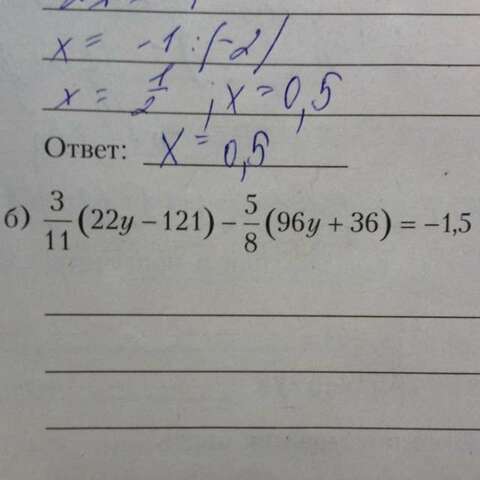 x = -1 : (-2)
x = 1/2 ; x = 0,5
Ответ: x = 0,5
б) 3/11 (22y − 121) − 5/8 (96y + 36) = −1,5